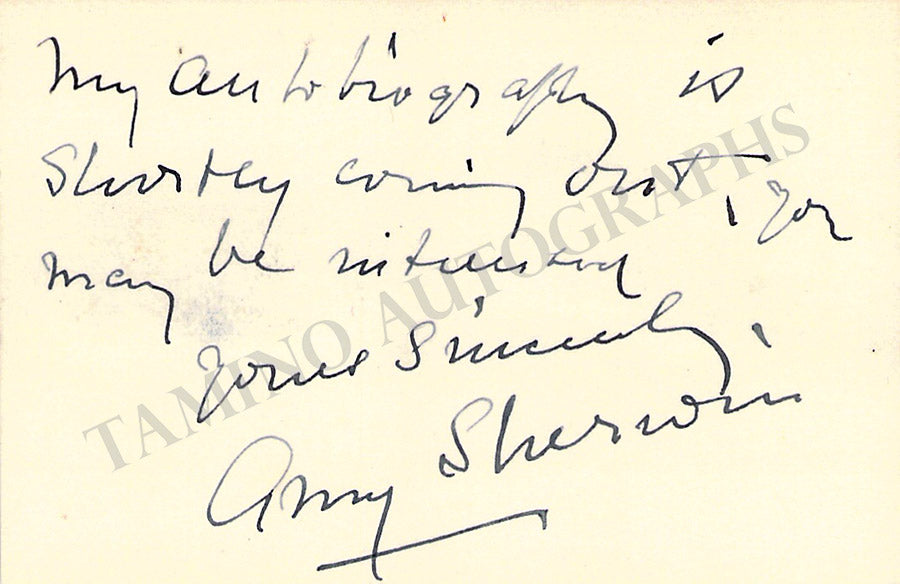 My Autobiography is
Shortly coming out, you
may be interested
Yours Sincerely,
Amy Sherwin
TAMINO AUTOGRAPHS